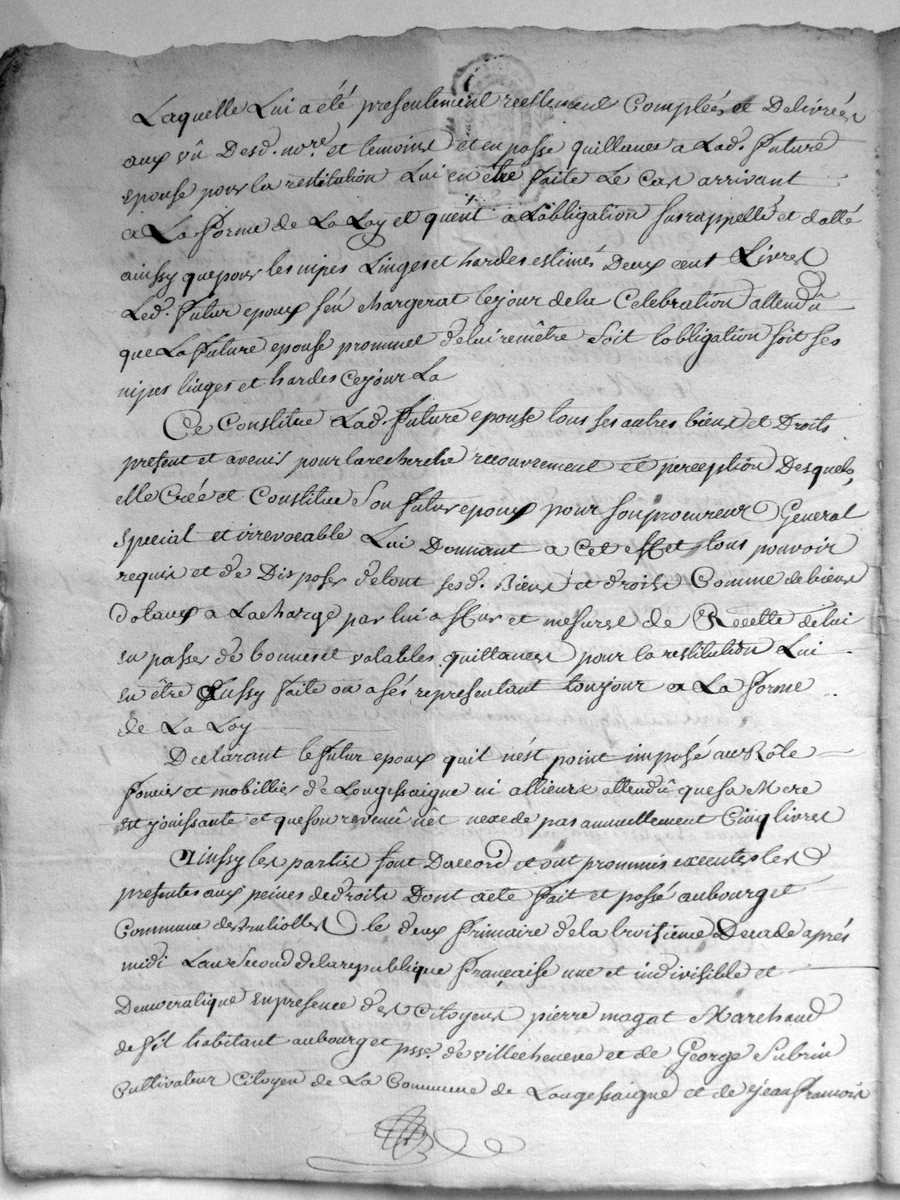 Laquelle Lui a été presentement reellement Comptées et Delivrées
aux vû Desd. nore. et temoins et en passe quittances a Lad. future
epouse pour la restitution Lui en être faite Le Cas arrivant
a La forme de La Loy et quent a L'obligation susrappellé et d'allé
ainssy que pour les nipes Linges et hardes estimés Deux cent Livres
Led. futur epoux s'en chargerat le jour de la Celebration attendû
que La future epouse prommet de lui remêtre soit l'obligation soit ses
nipes linges et hardes ce jour La
Ce Constitue Lad. future epouse tous ses autres biens et Droits
present et avenir pour la recherche recouvrement et perception Desquels
elle Crée et Constitue Son futur epoux pour son procureur General
Special et irrevocable Lui Donnant a Cet effet tous pouvoir
requis et de Disposer de tout sesd. Biens et droits Comme de biens
dotaux a La charge par lui assur et mesures de Recette de lui
en passer de bonnes et valables quittances pour la restitution Lui
en être Aussy faite ou a ses representant toujour a La forme
de La Loy
Declarant le futur epoux qu'il n'est point imposé au Rôle
foncier et mobillier de Longessaigne ni allieurs attendû que sa Mere
est jouissante et que son revenû nêt nexede pas annuellement Cinq livres
Ainssy les parties sont D'accord et ont prommis executer les
presentes aux peines de droits Dont acte fait et passé au bourg et
Commune des halles le deux frimaire de la troisieme Decade aprés
midi L'an Second de la republique française une et indivisible et
Democratique en presence des Citoyens pierre magat Marchand
de fil habitant au bourg et psse. de villecheneve et de George Subrin
Cultivateur Citoyen de La Commune de Longessaigne et de Jean françois